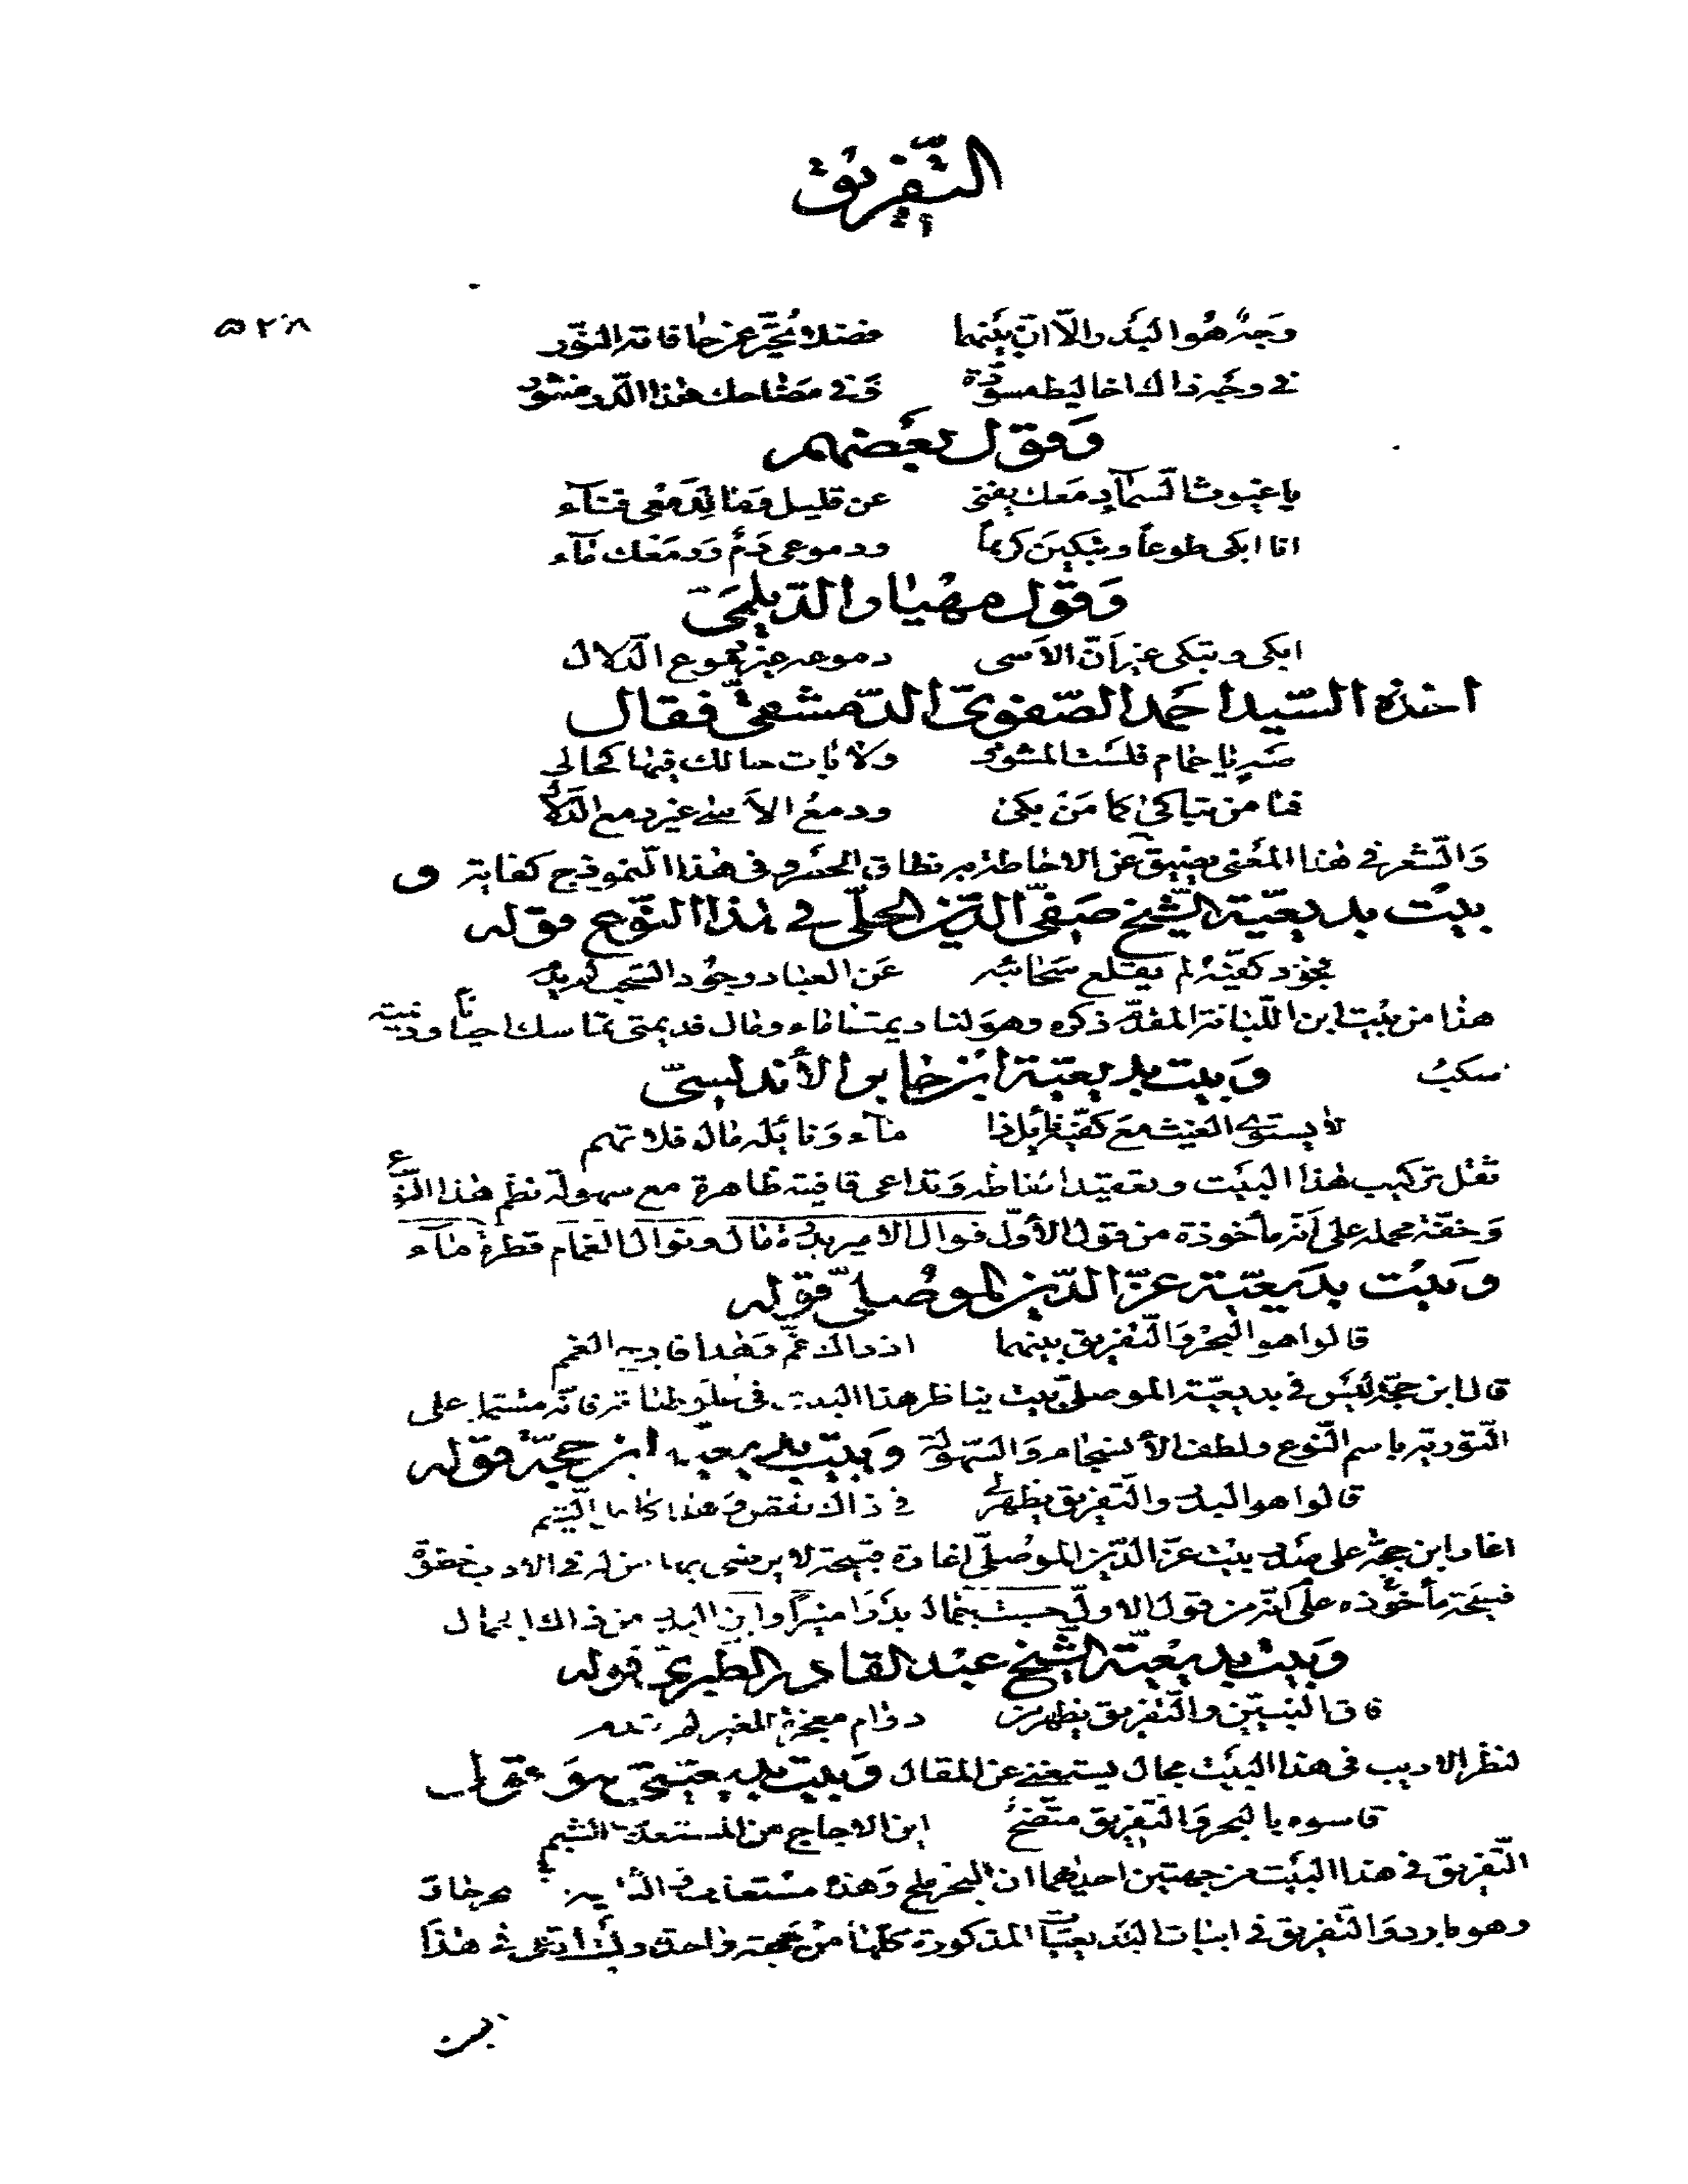 التّفريق
٥٢٨
وجهٌ هو البدر الّا انّ بينهما فضلا تحيّر عن حافاته النّور
في وجه ذاك اخاليط مسوّدة وفي مضاحك هذا الدّر منثور
وقول بعضهم
يا غيوث السّماء دمعك يفنى عن قليل وما لدمعي فناء
انا ابكي طوعاً وتبكين كرهاً ودموعي دمٌ ودمعك ماء
وقول مهيار الدّيلمىّ
ابكي وتبكي غير أنّ الأسى دموعه غير دموع الدّلال
اخذه السّيد احمد الصّفوىّ الدّمشقىّ فقال
صبر يا حمام فلست المشوق ولا بات حالك فيها كحالي
فما من تباكى كما من بكى ودمع الأسى غير دمع الدّلال
والشّعر في هذا المعنى يضيق عن الاحاطة به نطاق الحصر وفي هذا النّموذج كفاية و
بيت بديعيّة الشّيخ صفىّ الدّين الحلّى في هذا النّوع قوله
فجود كفّيه لم تقلع سحائبه عن العباد وجود السّحب لم يدم
هذا من بيت ابن اللّبانة المقدّم ذكره وهو لنا ديمتا ماء ومال فديمتى تماسك احياناً وديمته
سكبُ وبيت بديعيّة ابن جابر الأندلسىّ
لا يستوي الغيث مع كفّيه نائل ذا ماء ونائله مال فلا تهم
ثقل تركيب هذا البيت وتعقيد الفاظه وتداعى قافيته ظاهرة مع سهولة نظم هذا النّوع
وخفّة محمله على أنّه مأخوذة من قول الأوّل فنوال الامير بدرة مال ونوال الغمام قطرة ماء
وبيت بديعيّة عزّ الدّين الموصلىّ قوله
قالوا هو البحر والتّفريق بينهما اذ ذاك غمّ وهذا فارج الغمم
قال ابن حجّة ليس في بديعيّة الموصلىّ بيت يناظر هذا البيت في علوّ طباقه فانّه مشتمل على
التّورية باسم النّوع ولطف الأنسجام والسّهولة وبيت بديعيّة ابن حجّة قوله
قالوا هو البدر والتّفريق يظهر لي في ذاك نقص وهذا كامل الشّيم
اغار ابن حجّة على صدر بيت عزّ الدّين الموصلىّ اغارة قبيحة لا يرضى بها من له في الادب
قبيحة مأخوذه على أنّه من قول الاوّل حسبت جماله بدرا منيراً واين البدر من ذاك الجمال
وبيت بديعيّة الشّيخ عبد القادر الطّبرىّ قوله
فاق النبيّين والتّفريق يظهر من دوام معجزه الغير لم تدم
لنظر الاديب في هذا البيت مجال يستغنى عن المقال وبيت بديعيّتى هو قولى
قاسوه بالبحر والتّفريق متّضح اين الاجاج من المستعذب الشّبم
التّفريق في هذا البيت من جهتين احديهما ان البحر ملح وهذا مستعذب
وهو بارد والتّفريق في ابيات البديعيّات المذكورة كلّها من جهة واحدة هذا